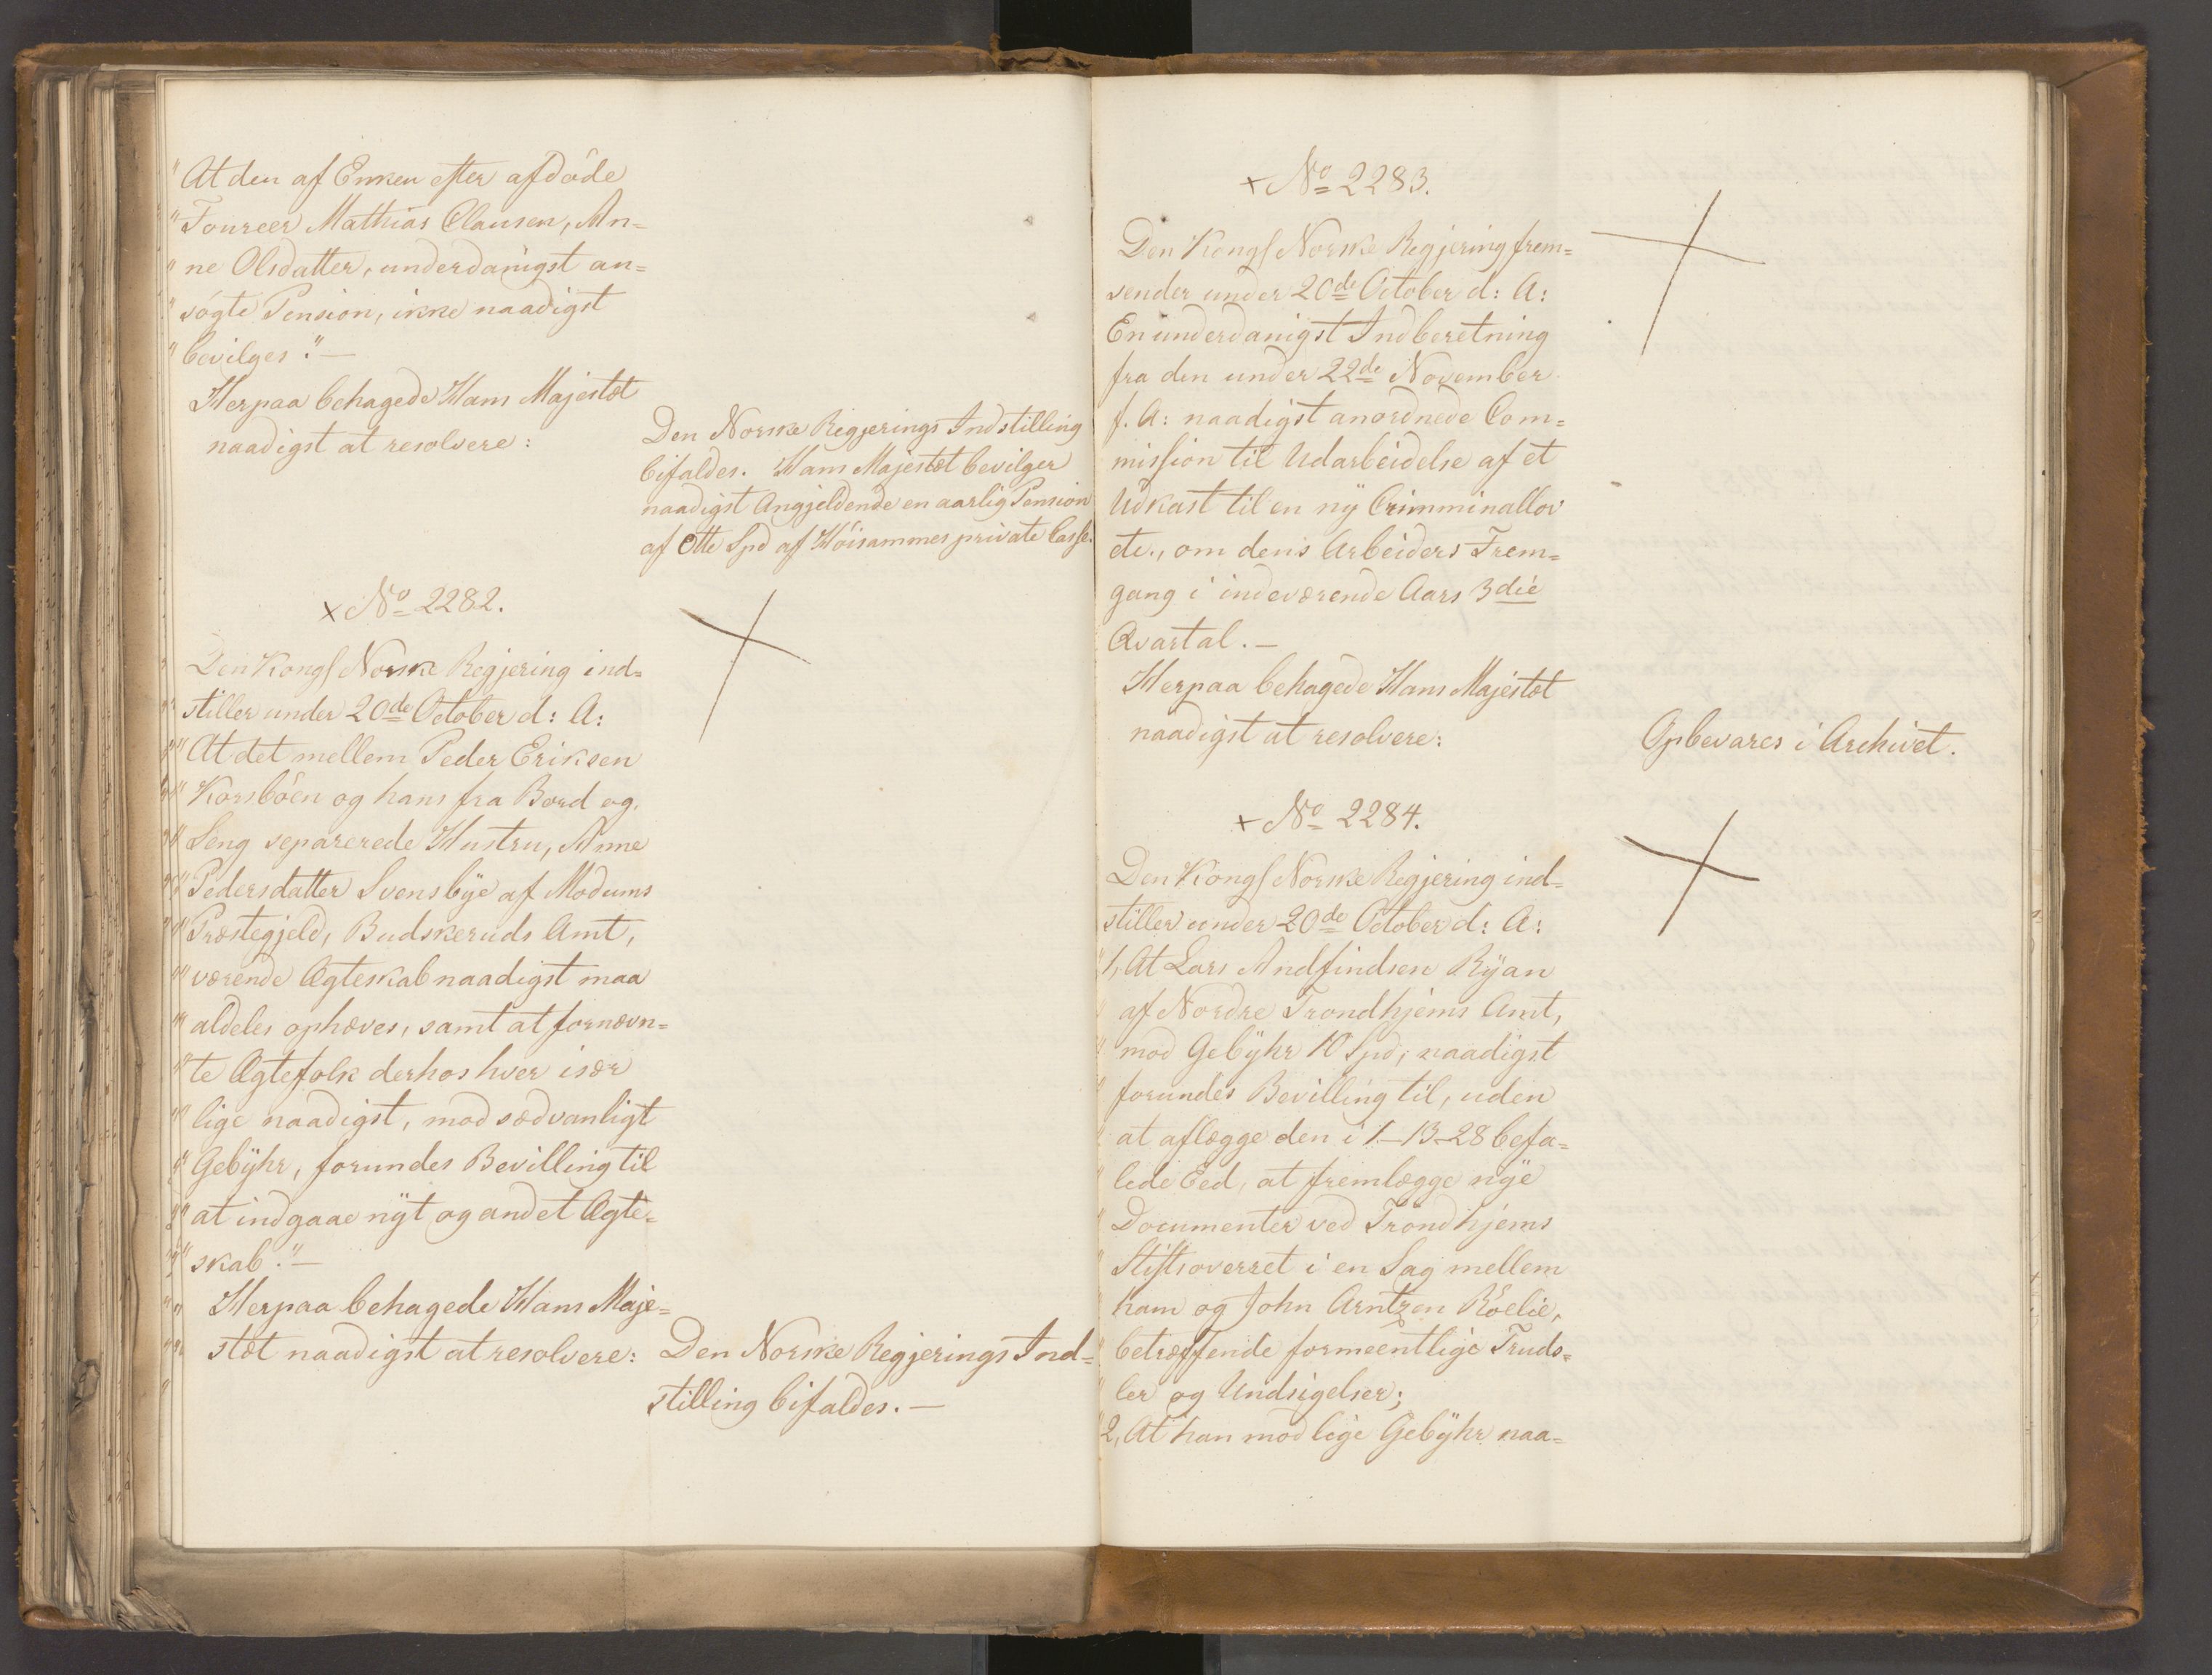 "At den af Enken efter afdøde
"Foureer Mathias Clausen, An=
"ne Olsdatter, underdanigst an=
"søgte Pension, ikke naadigst
"bevilges." —
Herpaa behagede Hans Majestæt
naadigst at resolvere:
Den Norske Regjerings Indstilling
bifaldes. Hans Majestæt bevilger
naadigst Angjeldende en aarlig Pension
af Otte Spd af Høisammes private Casse.
× No 2282.
Den Kongl Norske Regjering ind=
stiller under 20de October d: A:
"At det mellem Peder Eriksen
"Korsböen og hans fra Bord og
"Seng separerede Hustru, Anne
"Pedersdatter Svensbÿe af Modums
"Præstegjeld, Budskeruds Amt,
"værende Ægteskab naadigst maa
"aldeles ophæves, samt at fornævn=
"te Ægtefolk derhos hver især
"lige naadigst, mod sædvanligt
"Gebÿhr, forundes Bevilling til
"at indgaae nÿt og andet Ægte=
"skab." —
Herpaa behagede Hans Maje=
stæt naadigst at resolvere:
Den Norske Regjerings Ind=
stilling bifaldes. —
× No 2283.
Den Kongl Norske Regjering frem=
sender under 20de October d: A:
En underdanigst Indberetning
fra den under 22de November
f. A: naadigst anordnede Com=
mission til Udarbeidelse af et
Udkast til en nÿ Crimminallov
etc., om dens Arbeiders Frem=
gang i indeværende Aars 3die
Qvartal. —
Herpaa behagede Hans Majestæt
naadigst at resolvere:
Opbevares i Archivet.
× No 2284.
Den Kongl Norske Regjering ind=
stiller under 20de October d: A:
"1, At Lars Andfindsen Rÿan
"af Nordre Trondhjems Amt,
"mod Gebÿhr 10 Spd, naadigst
"forundes Bevilling til, uden
"at aflægge den i 1-13-28 befa=
"lede Eed, at fremlægge nÿe
"Documenter ved Trondhjems
"Stiftsoverret i en Sag mellem
"ham og John Arntzen Röelie,
"betræffende formeentlige Truds=
"ler og Undsigelser;
"2, At han mod lige Gebÿhr naa=